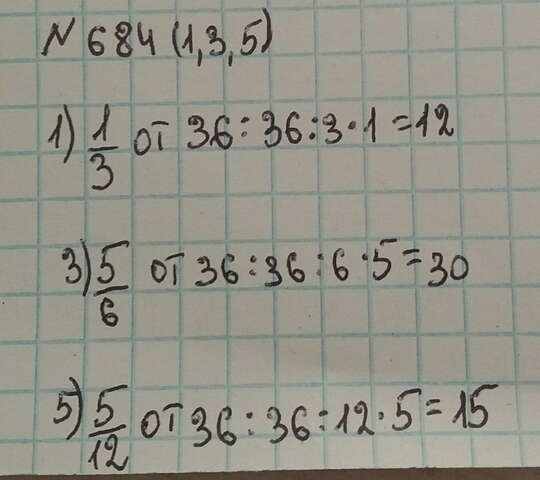 N 684 (1,3,5)
1) 1/3 от 36: 36:3·1=12
3) 5/6 от 36:36:6·5=30
5) 5/12 от 36:36:12·5=15